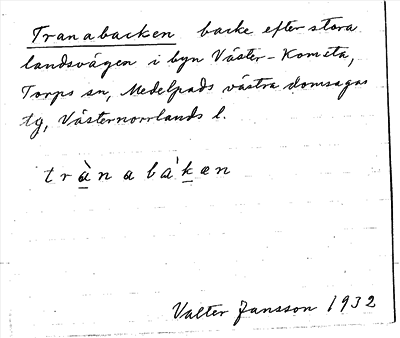 Tranabacken backe efter stora
landsvägen i byn Väster-Komsta,
Torps sn, Medelpads västra domsagas
tg, Västernorrlands l.
trànabákæn
Valter Jansson 1932